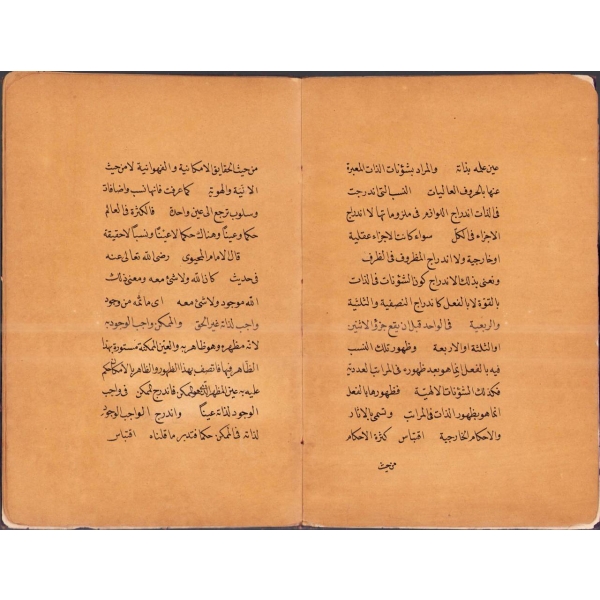 عين علمه بذاته والمراد بشؤنات الذات المعبرة
عنها بالحروف العاليات النسب التى اندرجت
فى الذات اندراج اللوازم فى ملزوماتها لا اندراج
الاجزاء فى الكل سواء كانت الاجزاء عقلية
او خارجية ولا اندراج المظروف فى الظرف
ونعنى بذلك الاندراج كون الشؤنات فى الذات
بالقوة لا بالفعل كاندراج النصفية والثلثية
والربعية فى الواحد قبل ان يقع جزؤ الاثنين
او الثلثة او الاربعة وظهور تلك النسب
فيه بالفعل انما هو بعد ظهوره فى المراتب العددية
فكذلك الشؤنات الالهية فظهورها بالفعل
انما هو بظهور الذات فى المراتب وتسمى بالاثار
والاحكام الخارجية اقتباس كثرة الاحكام
من حيث
من حيث الحقايق الامكانية والفهوانية لا من حيث
الانية والهوية كما عرفت فانها نسب واضافات
وسلوب ترجع الى عين واحدة فالكثرة فى العالم
حكما وعينا وهناك حكما لا عينا ونسبا لا حقيقة
قال الامام المحيوى رضى الله تعالى عنه
فى حديث كان الله ولا شئ معه ومعنى ذلك
الله موجود ولا شئ معه اى ما ثمه من وجود
واجب لذاته غير الحق والممكن واجب الوجود به
لانه مظهره وهو ظاهر به والعين الممكنة مستورة بهذا
الظاهر فيها فاتصف بهذا الظهور والظاهر بالامكان حكم
عليه به عين المظهر الذى هو الممكن فاندرج الممكن فى واجب
الوجود لذاته عينا واندرج الواجب الوجود
لذاته فى الممكن حكما فتدبر ما قلناه اقتباس